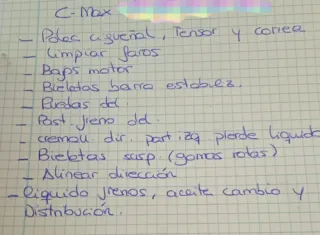 C-Max
- Polea cigüeñal, Tensor y correa
- Limpiar faros
- Bajos motor
- Bieletas barra estabiliz.
- Ruedas del
- Past. freno del.
- cremall. dir. part. izq pierde liquido
- Bieletas susp (gomas rotas)
- Alinear dirección
- Liquido frenos, aceite cambio y
Distribución.